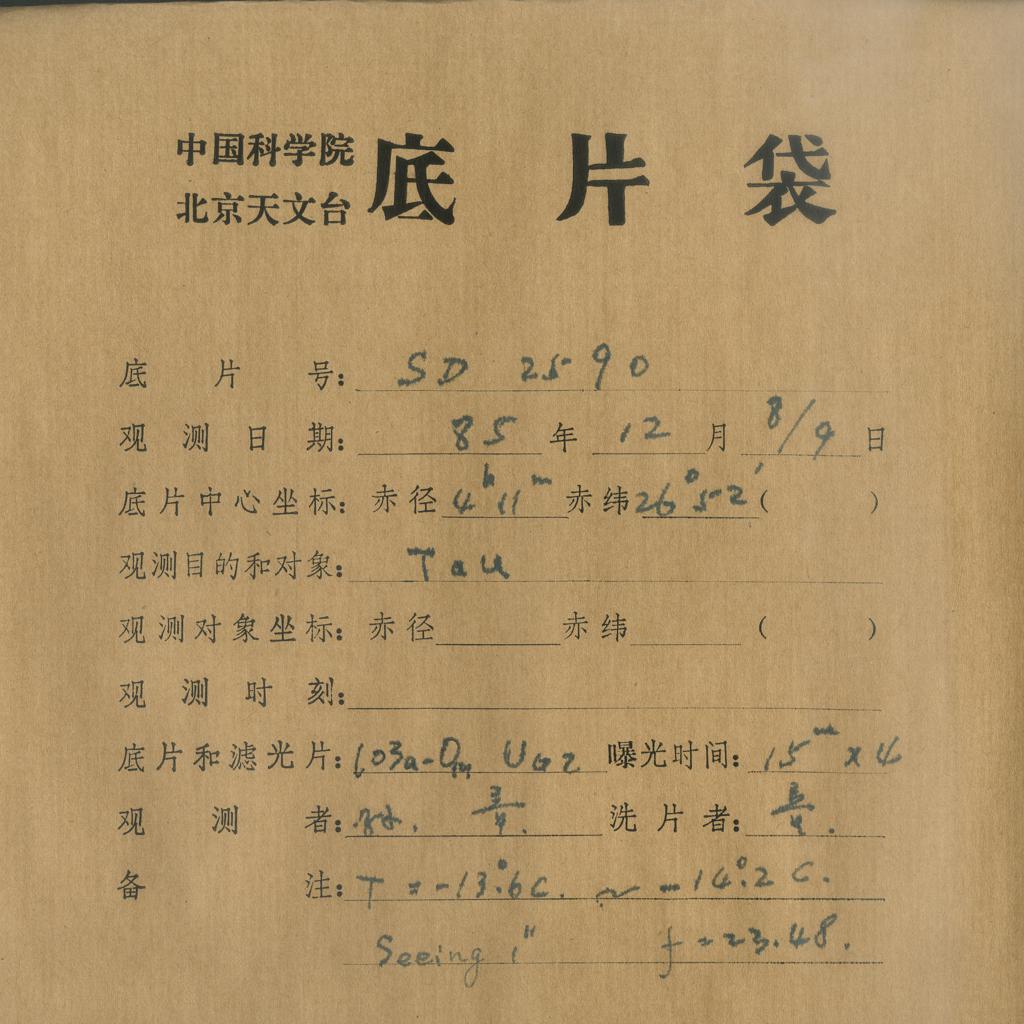 中国科学院
北京天文台
底片袋
底片号: SD 2590
观测日期: 85年12月8/9日
底片中心坐标: 赤径 4h 11m 赤纬 26°52′ ( )
观测目的和对象: Tau
观测对象坐标: 赤径 赤纬 ( )
观测时刻:
底片和滤光片: 103a-Om UG2 曝光时间: 15m x 4
观测者: 洗片者:
备注: T = -13°.6C. ~ -14°.2 C.
Seeing 1″ f = 23.48.